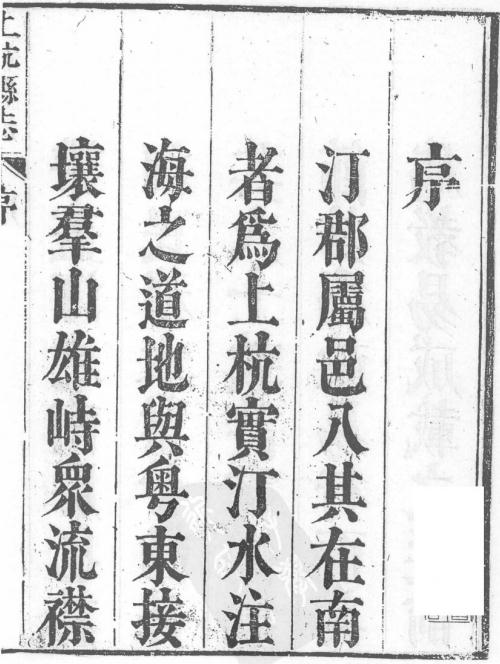 序
汀郡屬邑八其在南
者爲上杭實汀水注
海之道地與粤東接
壤羣山雄峙衆流襟
上杭縣志
序